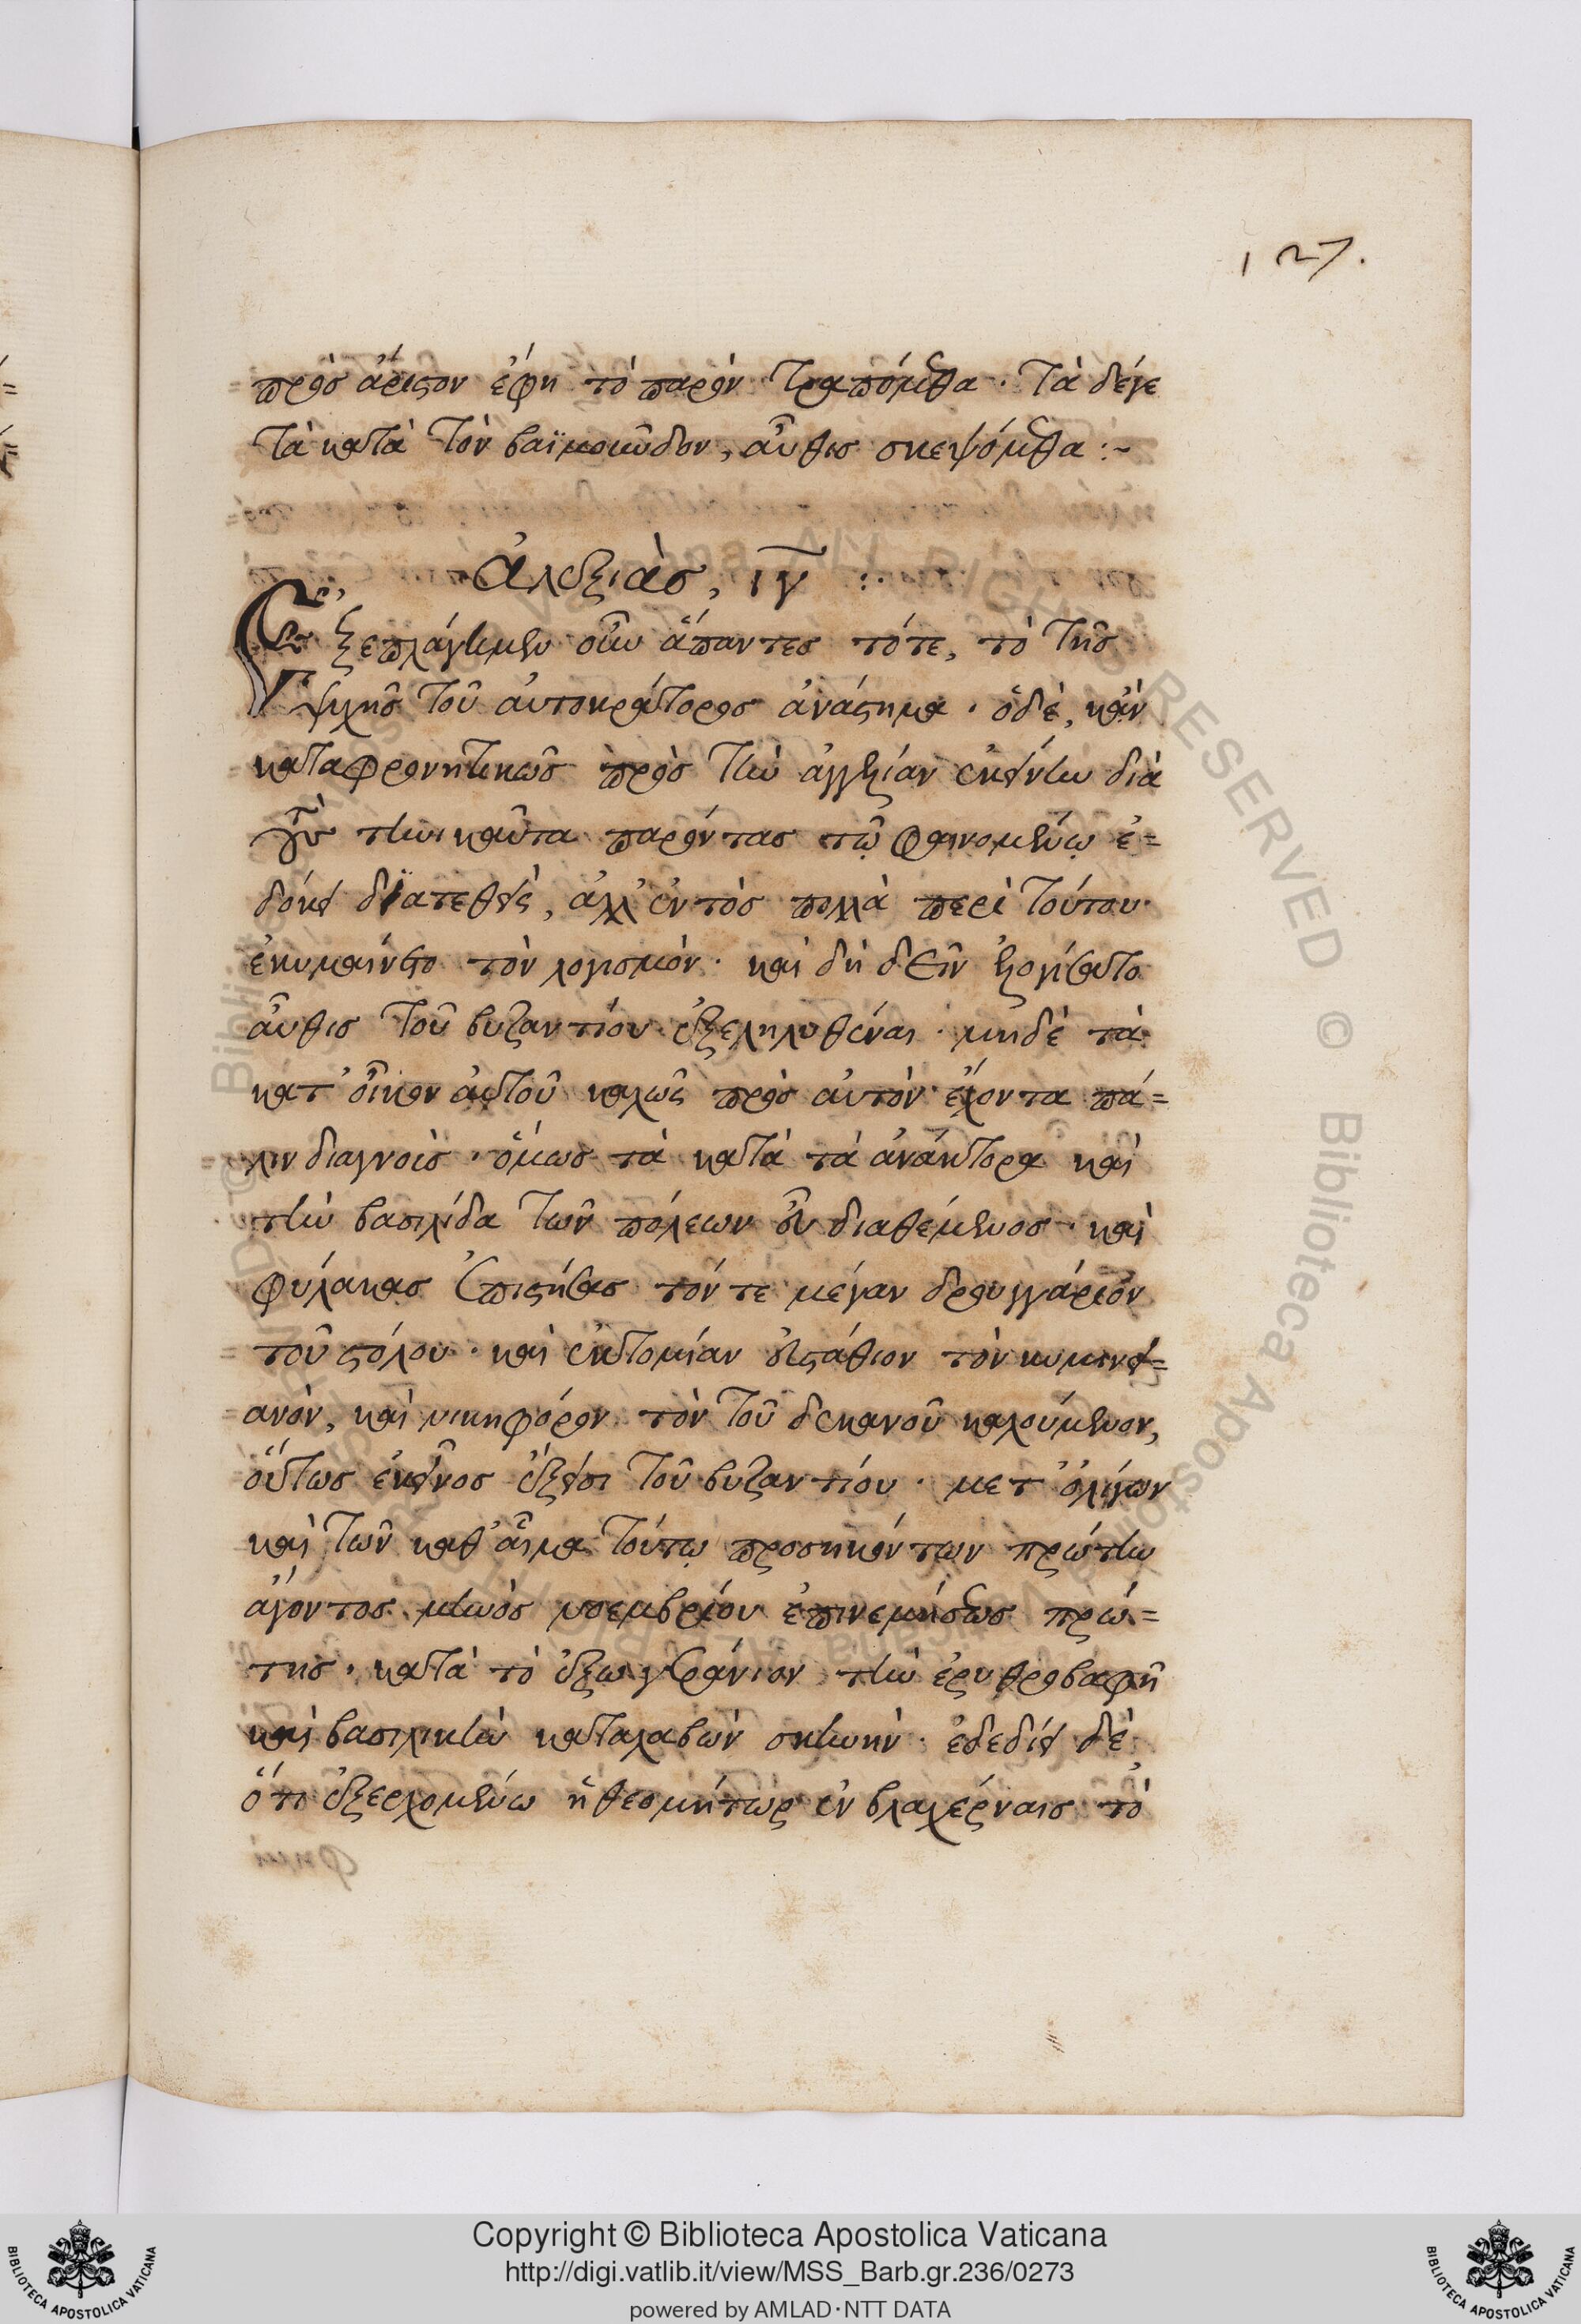 127.
πρὸσ ἄριστον ἔφη τὸ παρὸν τραπόμεθα · τὰ δέγε
τὰ κατὰ τὸν βαϊμοῦνδον, αὖθισ σκεψόμεθα :~
Ἀλεξιὰσ, ιγ :·
Ἐξεπλάγημεν οὖν ἅπαντεσ τότε, τὸ τῆσ
ψυχῆσ τοῦ αὐτοκράτοροσ ἀνάστημα · ὁ δὲ, κἂν
καταφρονητικῶσ πρὸσ τὴν ἀγγελίαν ἐκείνην διὰ
τοὺσ τηνικαῦτα παρόντασ τῷ φαινομένῳ ἐ=
δόκει διατεθεὶς, ἀλλ' ἐντὸσ πολλὰ περὶ τούτου
ἐκυμαίνετο τὸν λογισμὸν · καὶ δὴ δεῖν ἐλογίσατο
αὖθισ τοῦ βυζαντίου ἐξεληλυθέναι · μηδὲ τὰ
κατ' οἶκον αὐτοῦ καλῶς πρὸσ αὐτὸν ἔχοντα πά=
λιν διαγνοὺσ · ὅμωσ τὰ κατὰ τὰ ἀνάκτορα καὶ
τὴν βασιλίδα τῶν πόλεων εὖ διαθέμενοσ · καὶ
φύλακασ ἐπιστήσασ τόν τε μέγαν δρουγγάριον
τοῦ στόλου · καὶ ἐκτομίαν εὐστάθιον τὸν κυμινει=
ανὸν, καὶ νικηφόρον τὸν τοῦ δεκανοῦ καλούμενον,
οὕτωσ ἐκεῖνοσ ἔξεισι τοῦ βυζαντίου · μετ' ὀλίγων
καὶ τῶν καθ' αἷμα τούτῳ προσηκόντων πρώτην
ἄγοντοσ μηνὸσ νοεμβρίου ἐπινεμήσεωσ πρώ=
τησ · κατὰ τὸ ἔξω γεράνιον τὴν ἐρυθροβαφῆ
καὶ βασιλικὴν καταλαβὼν σκηνήν · ἐδεδίει δὲ
ὅτι ἐξερχομένω ἡ θεομήτωρ ἐν βλαχέρναισ τὸ
Copyright © Biblioteca Apostolica Vaticana
http://digi.vatlib.it/view/MSS_Barb.gr.236/0273
powered by AMLAD·NTT DATA